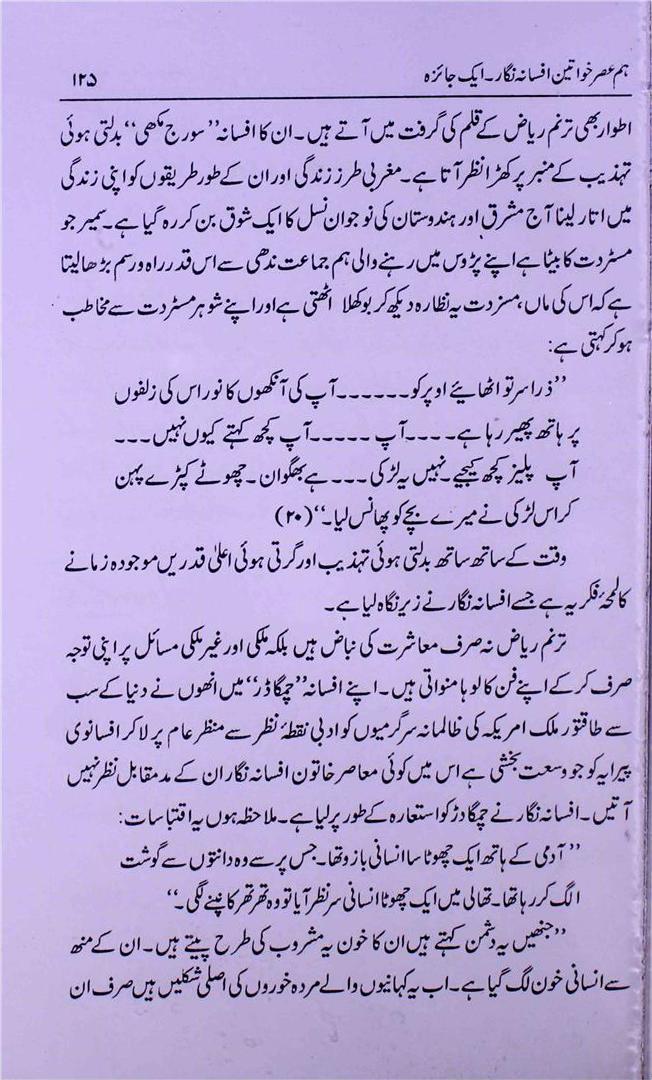 ہم عصر خواتین افسانہ نگار۔ ایک جائزہ ۱۲۵
اطوار بھی ترنم ریاض کے قلم کی گرفت میں آتے ہیں۔ ان کا افسانہ ”سورج مکھی“ بدلتی ہوئی
تہذیب کے منبر پر کھڑا نظر آتا ہے۔ مغربی طرز زندگی اور ان کے طور طریقوں کو اپنی زندگی
میں اتار لینا آج مشرق اور ہندوستان کی نوجوان نسل کا ایک شوق بن کر رہ گیا ہے۔ سمیر جو
مسٹر دت کا بیٹا ہے اپنے پڑوس میں رہنے والی ہم جماعت ندھی سے اس قدر راہ و رسم بڑھا لیتا
ہے کہ اس کی ماں، مسز دت یہ نظارہ دیکھ کر بوکھلا اٹھتی ہے اور اپنے شوہر مسٹر دت سے مخاطب
ہو کر کہتی ہے:
”ذرا سر تو اٹھائیے اوپر کو۔۔۔۔۔۔ آپ کی آنکھوں کا نور اس کی زلفوں
پر ہاتھ پھیر رہا ہے۔۔۔۔ آپ ۔۔۔۔۔ آپ کچھ کہتے کیوں نہیں۔۔۔
آپ پلیز کچھ کیجیے۔ نہیں یہ لڑکی ۔۔۔ ہے بھگوان۔ چھوٹے کپڑے پہن
کر اس لڑکی نے میرے بچے کو پھانس لیا۔“ (۲۰)
وقت کے ساتھ ساتھ بدلتی ہوئی تہذیب اور گرتی ہوئی اعلیٰ قدریں موجودہ زمانے
کا لمحۂ فکریہ ہے جسے افسانہ نگار نے زیر نگاہ لیا ہے۔
ترنم ریاض نہ صرف معاشرت کی نباض ہیں بلکہ ملکی اور غیر ملکی مسائل پر اپنی توجہ
صرف کر کے اپنے فن کا لوہا منواتی ہیں۔ اپنے افسانہ ”چمگادڑ“ میں انھوں نے دنیا کے سب
سے طاقتور ملک امریکہ کی ظالمانہ سرگرمیوں کو ادبی نقطۂ نظر سے منظر عام پر لا کر افسانوی
پیرایہ کو جو وسعت بخشی ہے اس میں کوئی معاصر خاتون افسانہ نگار ان کے مد مقابل نظر نہیں
آتیں۔ افسانہ نگار نے چمگادڑ کو استعارہ کے طور پر لیا ہے۔ ملاحظہ ہوں یہ اقتباسات:
”آدمی کے ہاتھ ایک چھوٹا سا انسانی بازو تھا۔ جس پر سے وہ دانتوں سے گوشت
الگ کر رہا تھا۔ تھالی میں ایک چھوٹا انسانی سر نظر آیا تو وہ تھر تھر کانپنے لگی۔“
”جنھیں یہ دشمن کہتے ہیں ان کا خون یہ مشروب کی طرح پیتے ہیں۔ ان کے منھ
سے انسانی خون لگ گیا ہے۔ اب یہ کہانیوں والے مردہ خوروں کی اصلی شکلیں ہیں صرف ان